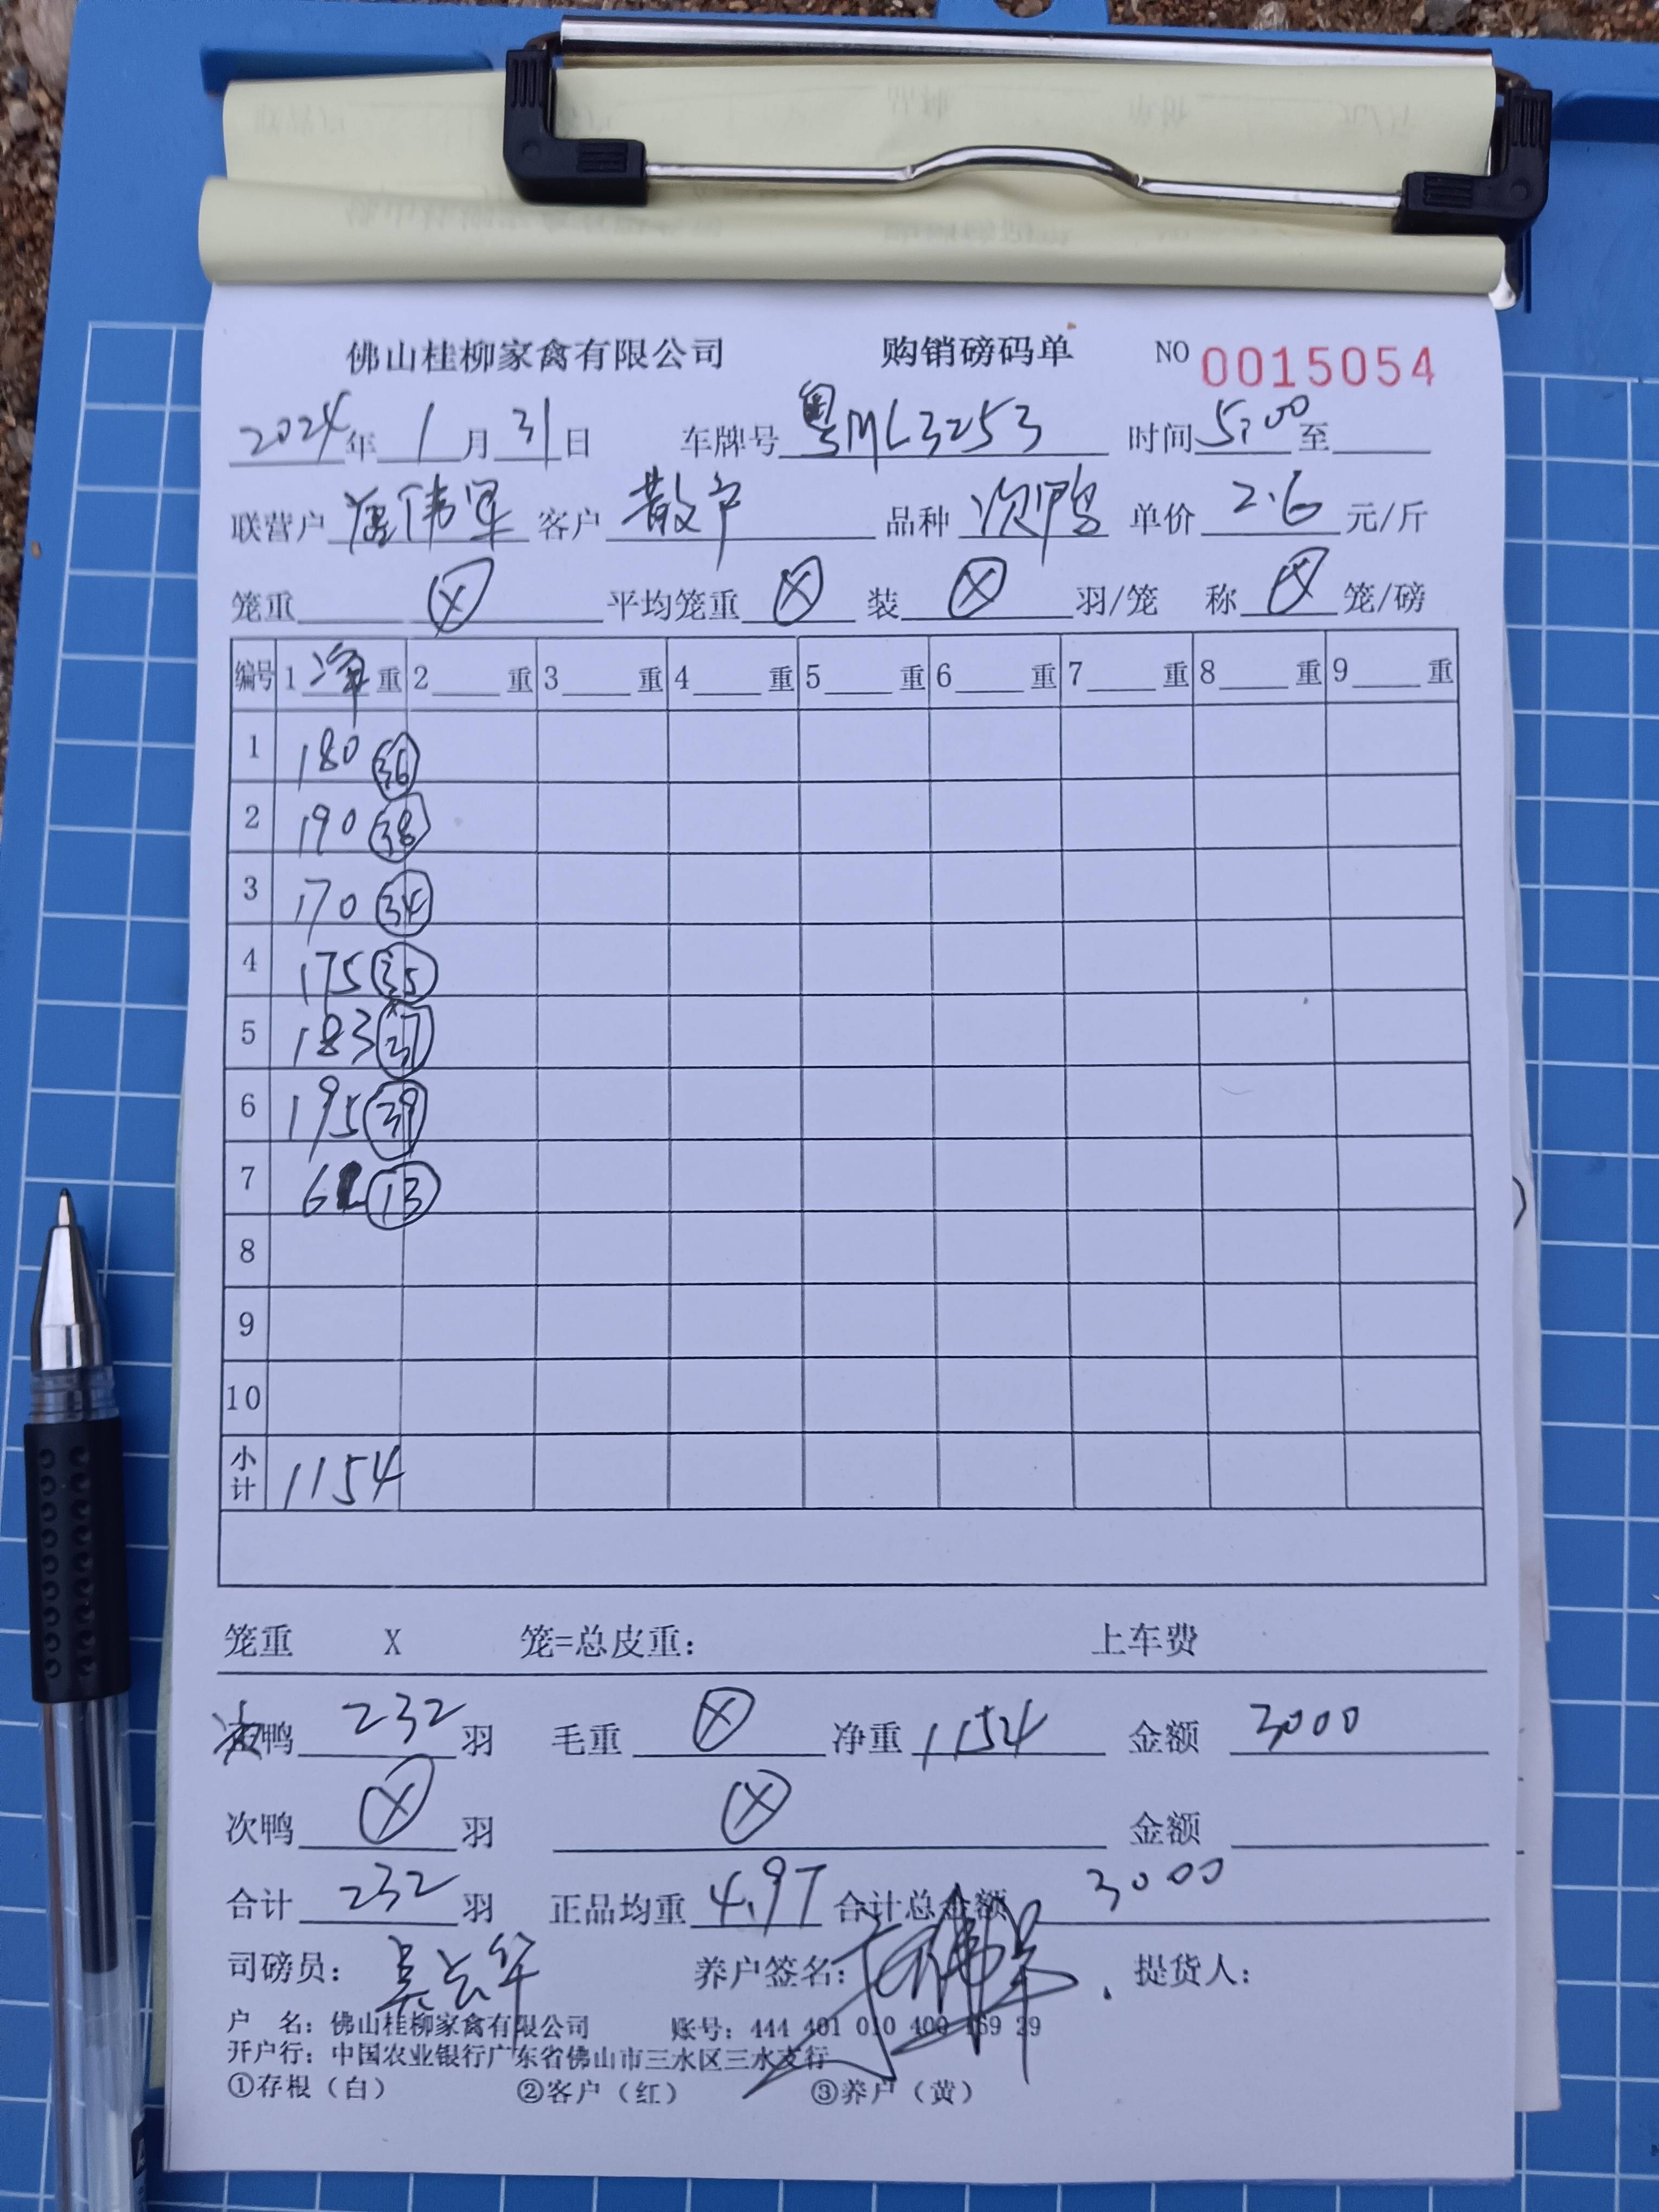 佛山桂柳家禽有限公司 购销磅码单 NO 0015054
2024年 1月 31日 车牌号 粤ML3253 时间 5:00 至
联营户 伟军 客户 散户 品种 次鸭 单价 2.6 元/斤
笼重 ⓧ 平均笼重 ⓧ 装 ⓧ 羽/笼 称 ⓧ 笼/磅
编号 1 净 重 2 重 3 重 4 重 5 重 6 重 7 重 8 重 9 重
1 180 36
2 190 38
3 170 34
4 175 35
5 183 37
6 195 39
7 61 13
8
9
10
小计 1154
笼重 X 笼=总皮重: 上车费
次鸭 232 羽 毛重 ⓧ 净重 1154 金额 3000
次鸭 ⓧ 羽 ⓧ 金额
合计 232 羽 正品均重 4.97 合计总金额 3000
司磅员: 吴云华 养户签名: 提货人:
户 名: 佛山桂柳家禽有限公司 账号: 444 401 010 400 169 29
开户行: 中国农业银行广东省佛山市三水区三水支行
①存根（白） ②客户（红） ③养户（黄）